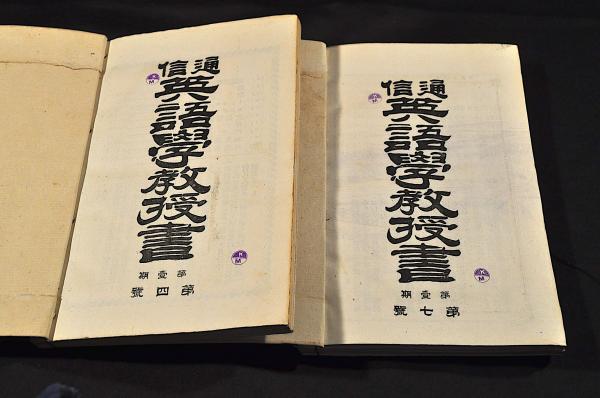 通信
英語學教授書
第壹期
第四號
K
M
通信
英語學教授書
第壹期
第七號
K
M